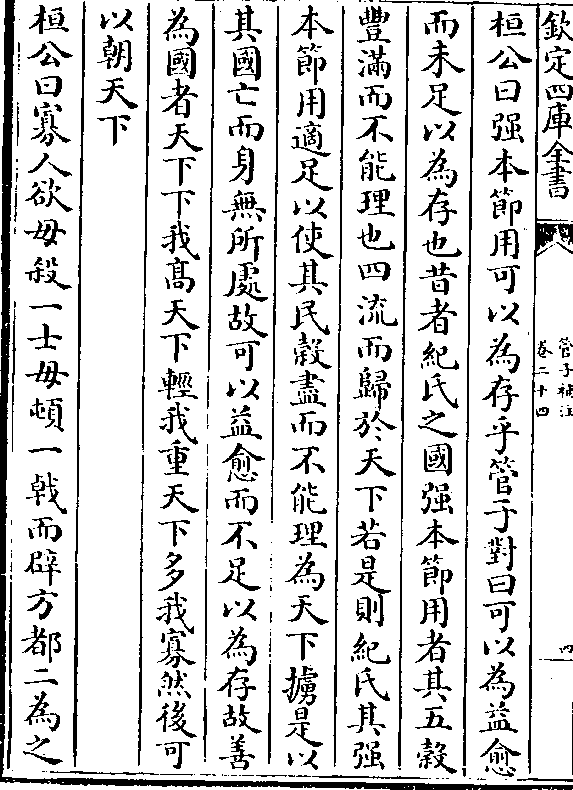 欽定四庫全書
管子補注
卷二十四
四
桓公曰强本節用可以為存乎管子對曰可以為益愈
而未足以為存也昔者紀氏之國强本節用者其五穀
豐滿而不能理也四流而歸於天下若是則紀氏其强
本節用適足以使其民穀盡而不能理為天下擄是以
其國亡而身無所處故可以益愈而不足以為存故善
為國者天下下我髙天下輕我重天下多我寡然後可
以朝天下
桓公曰寡人欲毋殺一士毋頓一㦸而辟方都二為之